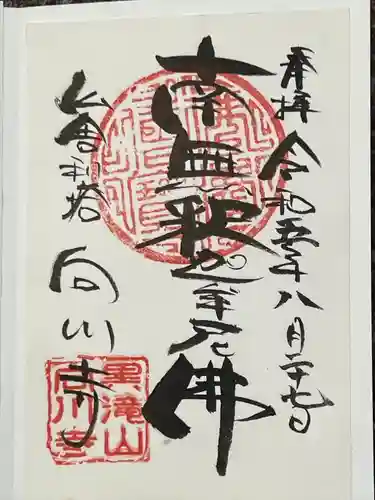 奉拝
令和五年八月二十七日
南無釈迦牟尼佛
仏舎利塔
向川寺
黒滝山
向川寺